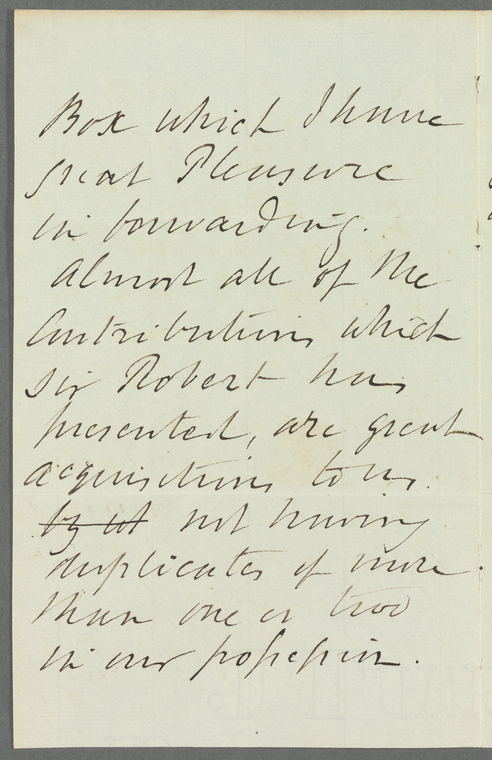 Box which I have
great Pleasure
in forwarding.
Almost all of the
Contributions which
Sir Robert has
presented, are great
acquisitions to us.
not having
duplicates of more
than one or two
in our possession.